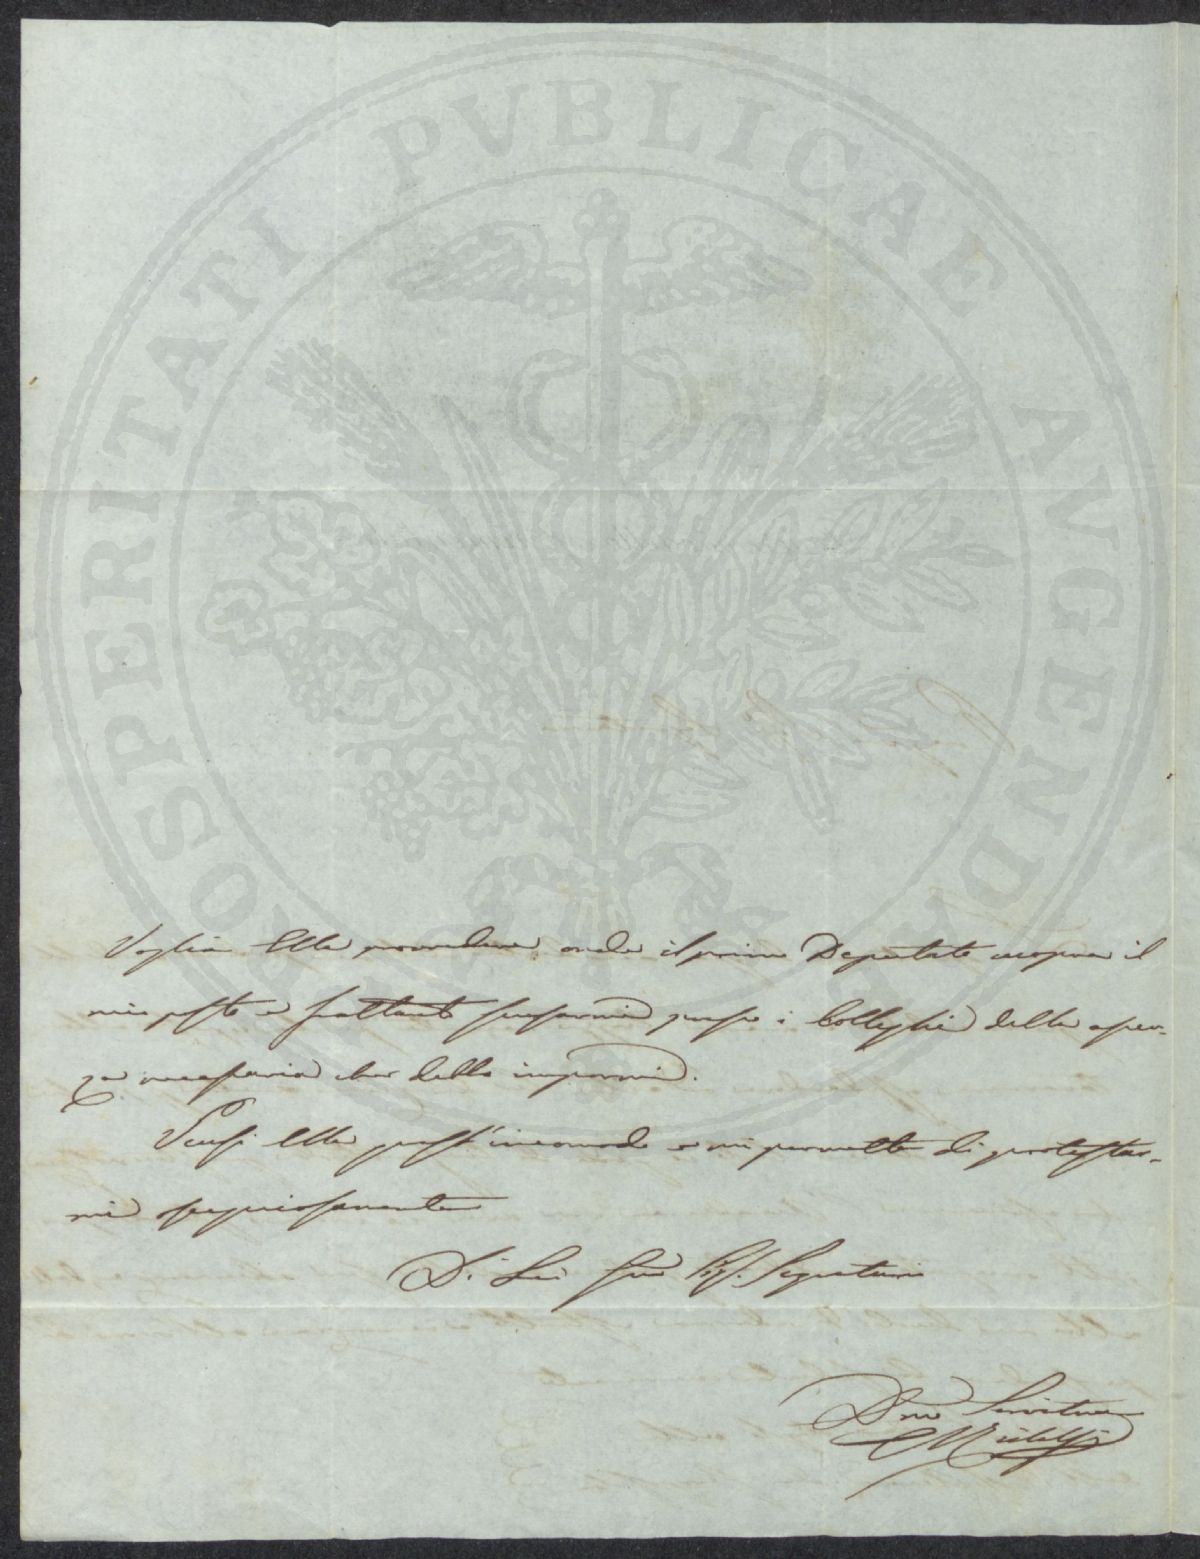 PROSPERITATI PVBLICAE AVGENDAE
Voglia Ella provvedere, onde il primo Deputato occupi il
mio posto e frattanto scusarmi presso i Colleghi della assen-
za necessaria che debbo impormi.
Scusi Ella quest'incomodo e mi permetta di protestar-
mi ossequiosamente
Di Lei Sig. Segretario
Servitore